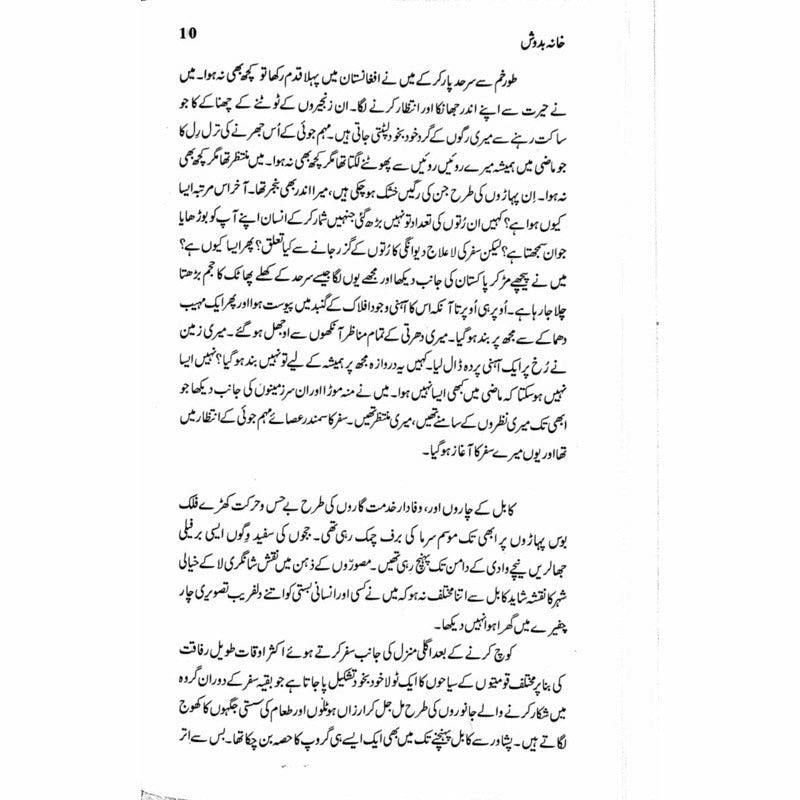 خانہ بدوش
10
طورخم سے سرحد پار کر کے میں نے افغانستان میں پہلا قدم رکھا تو کچھ بھی نہ ہوا۔ میں
نے حیرت سے اپنے اندر جھانکا اور انتظار کرنے لگا۔ ان زنجیروں کے ٹوٹنے کے چھناکے کا جو
ساکت رہنے سے میری رگوں کے گرد خود بخود لپٹتی جاتی ہیں۔ مہم جوئی کے اُس جھرنے کی ترل رِل کا
جو ماضی میں ہمیشہ میرے روئیں روئیں سے پھوٹنے لگتا تھا مگر کچھ بھی نہ ہوا۔ میں منتظر تھا مگر کچھ بھی
نہ ہوا۔ اِن پہاڑوں کی طرح جن کی رگیں خشک ہو چکی ہیں، میرا اندر بھی بنجر تھا۔ آخر اس مرتبہ ایسا
کیوں ہوا ہے؟ کہیں ان رُتوں کی تعداد تو نہیں بڑھ گئی جنہیں شمار کر کے انسان اپنے آپ کو بوڑھا یا
جوان سمجھتا ہے؟ لیکن سفر کی لاعلاج دیوانگی کا رُتوں کے گزر جانے سے کیا تعلق؟ پھر ایسا کیوں ہے؟
میں نے پیچھے مڑ کر پاکستان کی جانب دیکھا اور مجھے یوں لگا جیسے سرحد کے کھلے پھاٹک کا حجم بڑھتا
چلا جا رہا ہے۔ اُوپر ہی اُوپر تا آنکہ اس کا آہنی وجود افلاک کے گنبد میں پیوست ہوا اور پھر ایک مہیب
دھماکے سے مجھ پر بند ہو گیا۔ میری دھرتی کے تمام مناظر آنکھوں سے اوجھل ہو گئے۔ میری زمین
نے رُخ پر ایک آہنی پردہ ڈال لیا۔ کہیں یہ دروازہ مجھ پر ہمیشہ کے لیے تو نہیں بند ہو گیا؟ نہیں ایسا
نہیں ہو سکتا کہ ماضی میں کبھی ایسا نہیں ہوا۔ میں نے منہ موڑا اور ان سرزمینوں کی جانب دیکھا جو
ابھی تک میری نظروں کے سامنے تھیں، میری منتظر تھیں۔ سفر کا سمندر عصائے مہم جوئی کے انتظار میں
تھا اور یوں میرے سفر کا آغاز ہو گیا۔
کابل کے چاروں اور، وفادار خدمت گاروں کی طرح بے حس و حرکت کھڑے فلک
بوس پہاڑوں پر ابھی تک موسم سرما کی برف چمک رہی تھی۔ ججوں کی سفید وِگوں ایسی برفیلی
جھالریں نیچے وادی کے دامن تک پہنچ رہی تھیں۔ مصوّروں کے ذہن میں نقش شانگری لا کے خیالی
شہر کا نقشہ شاید کابل سے اتنا مختلف نہ ہو کہ میں نے کسی اور انسانی بستی کو اتنے دلفریب تصویری چار
چفیرے میں گھرا ہوا نہیں دیکھا۔
کوچ کرنے کے بعد اگلی منزل کی جانب سفر کرتے ہوئے اکثر اوقات طویل رفاقت
کی بنا پر مختلف قومیتوں کے سیاحوں کا ایک ٹولا خود بخود تشکیل پا جاتا ہے جو بقیہ سفر کے دوران گروہ
میں شکار کرنے والے جانوروں کی طرح مل جل کر ارزاں ہوٹلوں اور طعام کی سستی جگہوں کا کھوج
لگاتے ہیں۔ پشاور سے کابل پہنچنے تک میں بھی ایک ایسے ہی گروپ کا حصہ بن چکا تھا۔ بس سے اتر